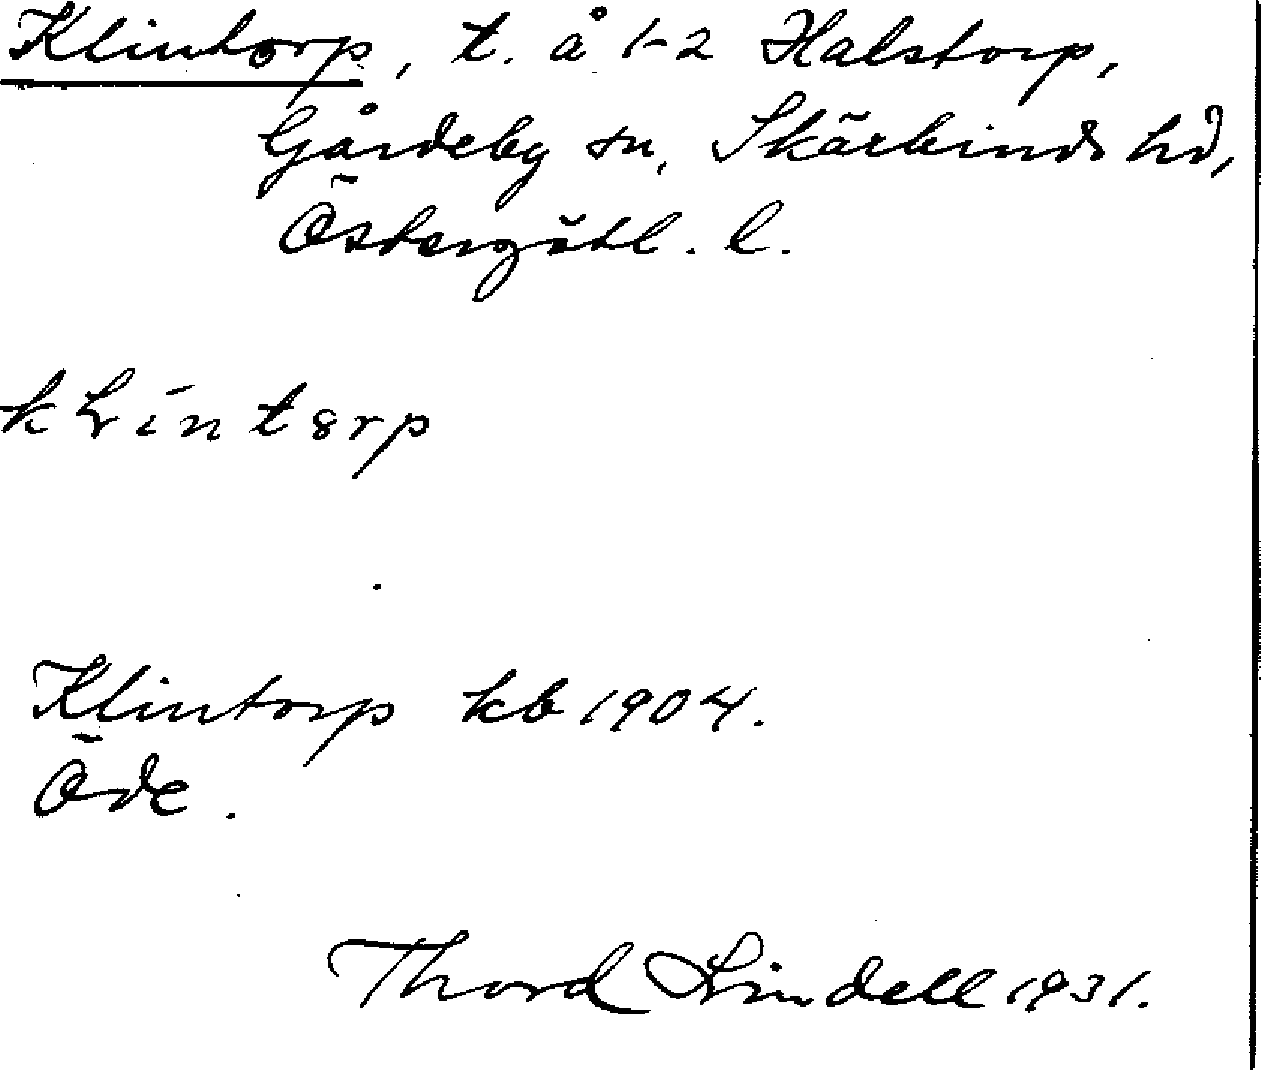 Klintorp, t. å 1-2 Halstorp,
Gårdeby sn, Skärkinds hd,
Östergötl. l.
kLíntɞrp
Klintorp kb 1904.
Öde.
Thord Lindell 1931.